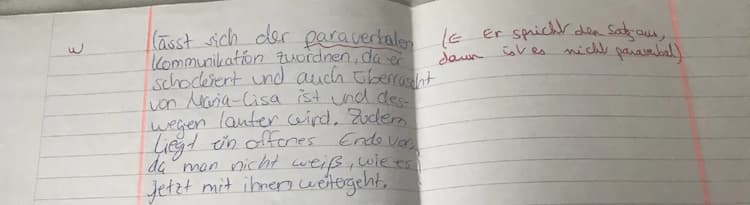 w
lässt sich der paraverbalen
Kommunikation zuordnen, da er
schockiert und auch überrascht
von Maria-Lisa ist und des-
wegen lauter wird. Zudem
liegt ein offenes Ende vor,
da man nicht weiß, wie es
jetzt mit ihnen weitergeht.
(← Er spricht den Satz aus,
dann ist es nicht paraverbal)